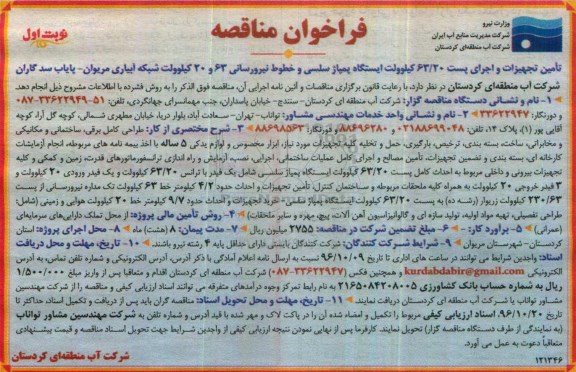 وزارت نیرو
شرکت مدیریت منابع آب ایران
شرکت آب منطقه‌ای کردستان
فراخوان مناقصه
نوبت اول
تأمین تجهیزات و اجرای پست ۶۳/۲۰ کیلوولت ایستگاه پمپاژ سلسی و خطوط نیرورسانی ۶۳ و ۲۰ کیلوولت شبکه آبیاری مریوان- پایاب سد گاران
شرکت آب منطقه‌ای کردستان در نظر دارد، با رعایت قانون برگزاری مناقصات و آئین نامه اجرایی آن، مناقصه فوق الذکر را به روش فشرده با اطلاعات مشروح ذیل انجام دهد
۱- نام و نشانی دستگاه مناقصه گزار: شرکت آب منطقه ای کردستان- سنندج- خیابان پاسداران، جنب مهمانسرای جهانگردی، تلفن: ۵۱-۳۳۶۲۲۹۴۹-۰۸۷
و دورنگار: ۳۳۶۲۲۹۴۷ ۲- نام و نشانی واحد خدمات مهندسی مشاور: تواناب- تهران- سعادت آباد، بلوار دریا، خیابان مطهری شمالی، کوچه گل آرا، کوچه
آقایی پور (۱)، پلاک ۱۴، تلفن: ۰۲۱۸۸۶۹۹۰۴۸ – ۸۸۶۹۶۲۸۰ و دورنگار: ۸۸۶۹۸۵۶۳ ۳- شرح مختصری از کار: طراحی کامل برقی، ساختمانی و مکانیکی
و مخابراتی، ساخت، بسته بندی، ترخیص، بارگیری، حمل و تخلیه کلیه تجهیزات مورد نیاز، ابزار مخصوص و لوازم یدکی ۵ ساله با اخذ بیمه نامه های مربوطه، انجام آزمایشات
کارخانه ای، بسته بندی و تضمین تجهیزات، تأمین مصالح و اجرای کامل عملیات ساختمانی، اجرایی، نصب، آزمایش و راه اندازی ترانسفورماتورهای قدرت، زمین و کمکی و کلیه
تجهیزات بیرونی و داخلی مربوط به احداث کامل پست ۶۳/۲۰ کیلوولت ایستگاه پمپاژ سلسی شامل یک فیدر با ترانس ۶۳/۲۰ کیلوولت و یک فیدر ورودی ۲۰ کیلوولت و
۳ فیدر خروجی ۲۰ کیلوولت به همراه کلیه ملحقات مربوطه و ساختمان کنترل، تأمین تجهیزات و احداث حدود ۴/۲ کیلومتر خط ۶۳ کیلوولت تک مداره نیرورسانی از پست
۲۳۰/۶۳ کیلوولت زریوار (رشـه ده) به پست ۶۳/۲۰ کیلوولت ایستگاه پمپاژ سلسی- خرید تجهیزات و احداث حدود ۹/۷ کیلومتر خط ۲۰ کیلوولت هوایی و زمینی (شامل:
طراحی تفصیلی، تهیه مواد اولیه، تولید سازه ای و گالوانیزاسیون آهن آلات، پیچ، مهره و سایر ملحقات) ۴- روش تأمین مالی پروژه: از محل تملک دارایی‌های سرمایه‌ای
(عمرانی) ۵- برآورد کار: – ۶- مبلغ تضمین شرکت در مناقصه: ۲۷۵۵ میلیون ریال ۷- مدت پیمان: ۸ (هشت) ماه ۸- محل اجرای پروژه: استان
کردستان- شهرستان مریوان ۹- شرایط شرکت کنندگان: شرکت کنندگان بایستی دارای حداقل پایه ۴ رشته نیرو باشند. ۱۰- تاریخ، مهلت و محل دریافت
اسناد: واجدین شرایط می توانند در ساعت های اداری تا تاریخ ۹۶/۱۰/۰۹ نسبت به ارسال نامه اعلام آمادگی با ذکر آدرس، آدرس الکترونیکی و شماره تلفن تماس، به آدرس
الکترونیکی kurdabdabir@gmail.com و همچنین فکس (۳۳۶۲۲۹۴۷-۰۸۷) شرکت آب منطقه ای کردستان اقدام و متعاقبا پس از واریز مبلغ ۱/۵۰۰/۰۰۰
ریال به شماره حساب بانک کشاورزی ۲۱۶۵۰۸۴۲۰۸۰۰۵ به نام رابط تمرکز وجوه درآمدهای متفرقه می توانند اسناد ارزیابی کیفی و مناقصه را از شرکت مهندسین
مشاور تواناب یا شرکت آب منطقه ای کردستان دریافت نمایند. ۱۱- تاریخ، مهلت و محل تحویل اسناد: مناقصه گران باید پس از دریافت و تکمیل اسناد، حداکثر تا
تاریخ ۹۶/۱۰/۲۰، اسناد ارزیابی کیفی مربوط را تکمیل و امضاء شده آن را در پاکت لاک و مهر شده با قید آدرس و شماره تلفن به شرکت مهندسین مشاور تواناب
(به نمایندگی از طرف دستگاه مناقصه گزار) تحویل نمایند. کارفرما پس از نهایی نمودن نتیجه ارزیابی کیفی از واجدین شرایط جهت تحویل اسناد مناقصه و قیمت پیشنهادی
متعاقباً دعوت به عمل می آورد.
شرکت آب منطقه‌ای کردستان
۱۲۱۳۴۶